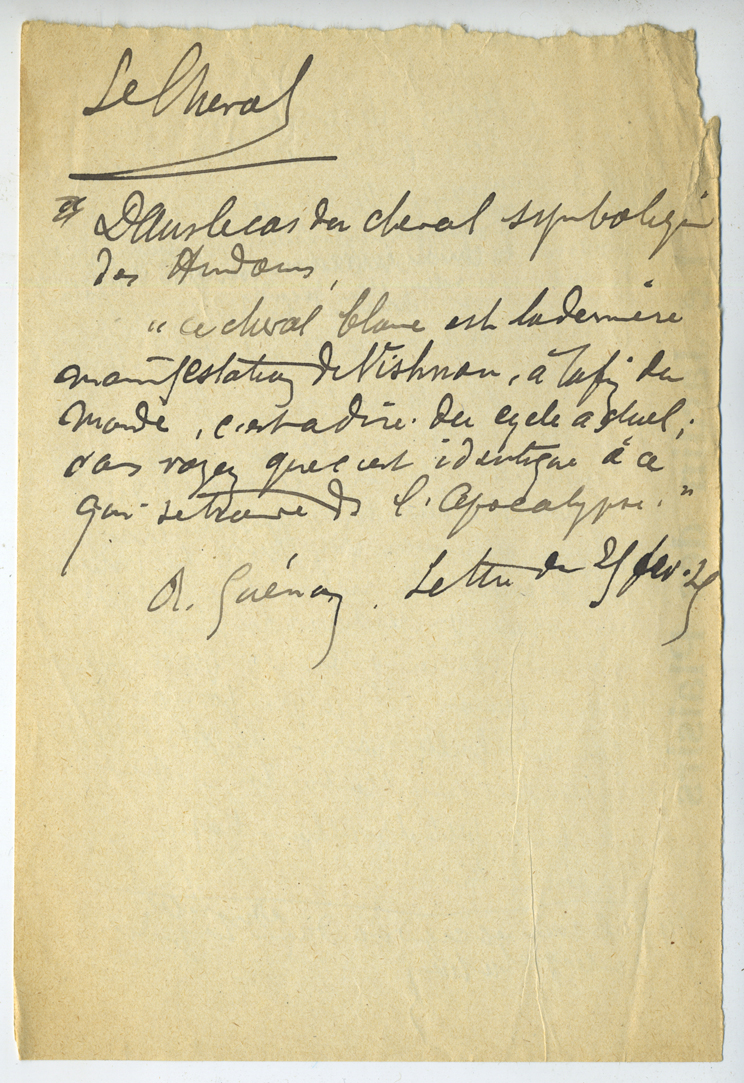 Le Cheval
Dans le cas du cheval symbolique
des Hindous,
"ce cheval blanc est la dernière
manifestation de Vishnou, à la fin du
monde, c'est a dire du cycle actuel;
vous voyez que c'est identique à ce
qui se trouve ds l'Apocalypse."
R. Guénon. Lettre du 25 fev. 25